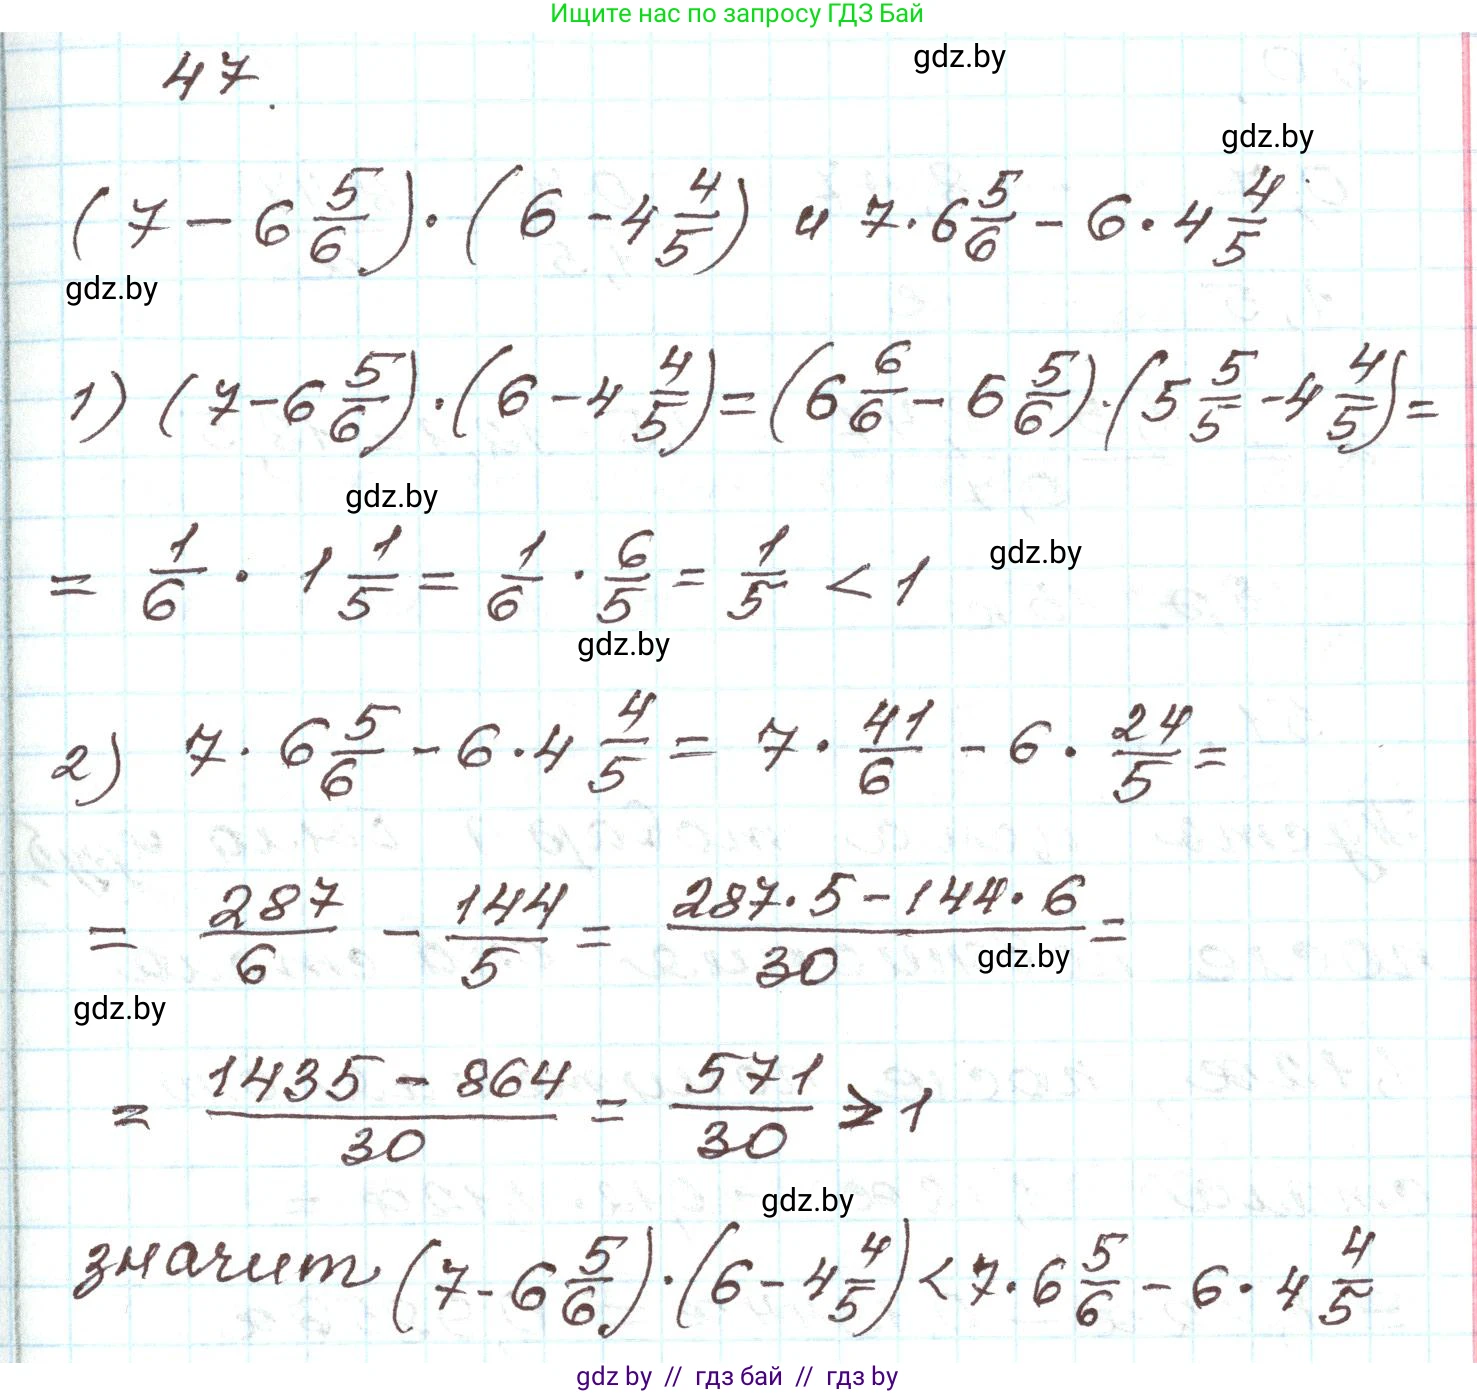 Ищите нас по запросу ГДЗ Бай
47.
gdz.by
gdz.by
(7 - 6 5/6) · (6 - 4 4/5) и 7 · 6 5/6 - 6 · 4 4/5
gdz.by
1) (7 - 6 5/6) · (6 - 4 4/5) = (6 6/6 - 6 5/6) · (5 5/5 - 4 4/5) =
gdz.by
= 1/6 · 1 1/5 = 1/6 · 6/5 = 1/5 < 1
gdz.by
gdz.by
2) 7 · 6 5/6 - 6 · 4 4/5 = 7 · 41/6 - 6 · 24/5 =
= 287/6 - 144/5 = (287 · 5 - 144 · 6)/30 =
gdz.by
gdz.by
= (1435 - 864)/30 = 571/30 > 1
gdz.by
значит (7 - 6 5/6) · (6 - 4 4/5) < 7 · 6 5/6 - 6 · 4 4/5
gdz by // гдз бай // гдз by